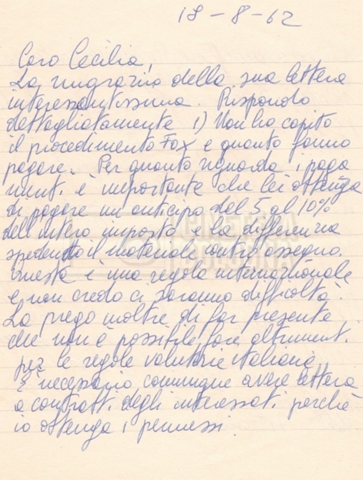 18-8-62
Caro Cecilia,
La ringrazio della sua lettera
interessantissima. Rispondo
dettagliatamente 1) Non ho capito
il procedimento Fox e quanto fanno
pagare. Per quanto riguarda i paga
menti, è importante che lei ottenga
di pagare un anticipo del 5 al 10%
dell'intero imposto e la differenza
spedendo il materiale contro assegno.
Questa è una regola internazionale
e non credo ci saranno difficoltà.
La prego inoltre di far presente
che non è possibile fare altrimenti
per le regole valutarie italiane.
È necessario comunque avere lettera
o contratti degli interessati perché
io ottenga i permessi.